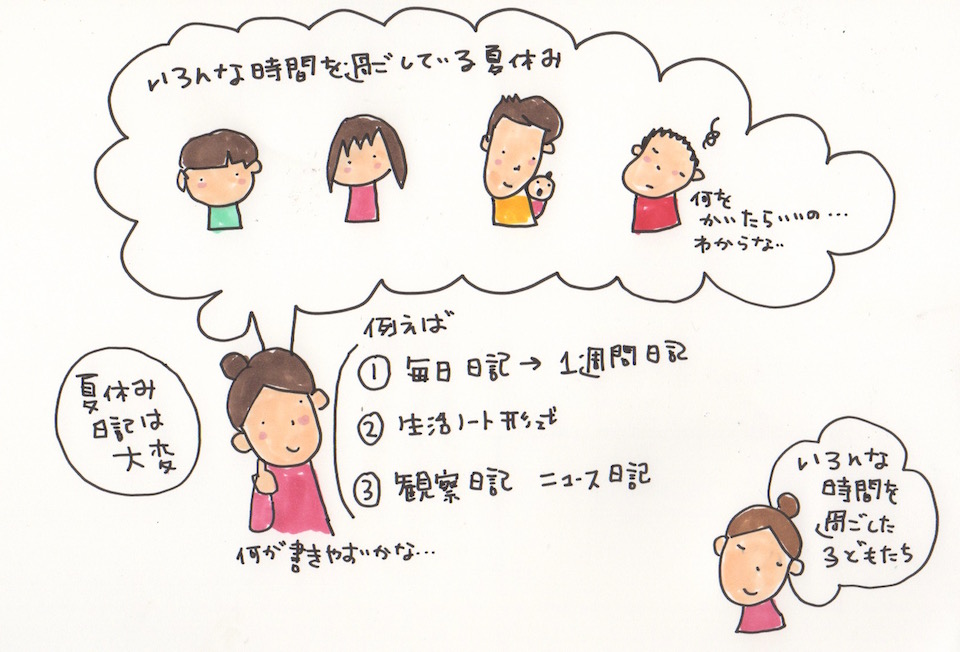 いろんな時間を過ごしている夏休み
何を
かいたらいいの…
わからな..
夏休み
日記は
大変
例えば
① 毎日日記→1週間日記
② 生活ノート形式
③ 観察日記 ニュース日記
何が書きやすいかな…
いろんな
時間を
過ごした
子どもたち